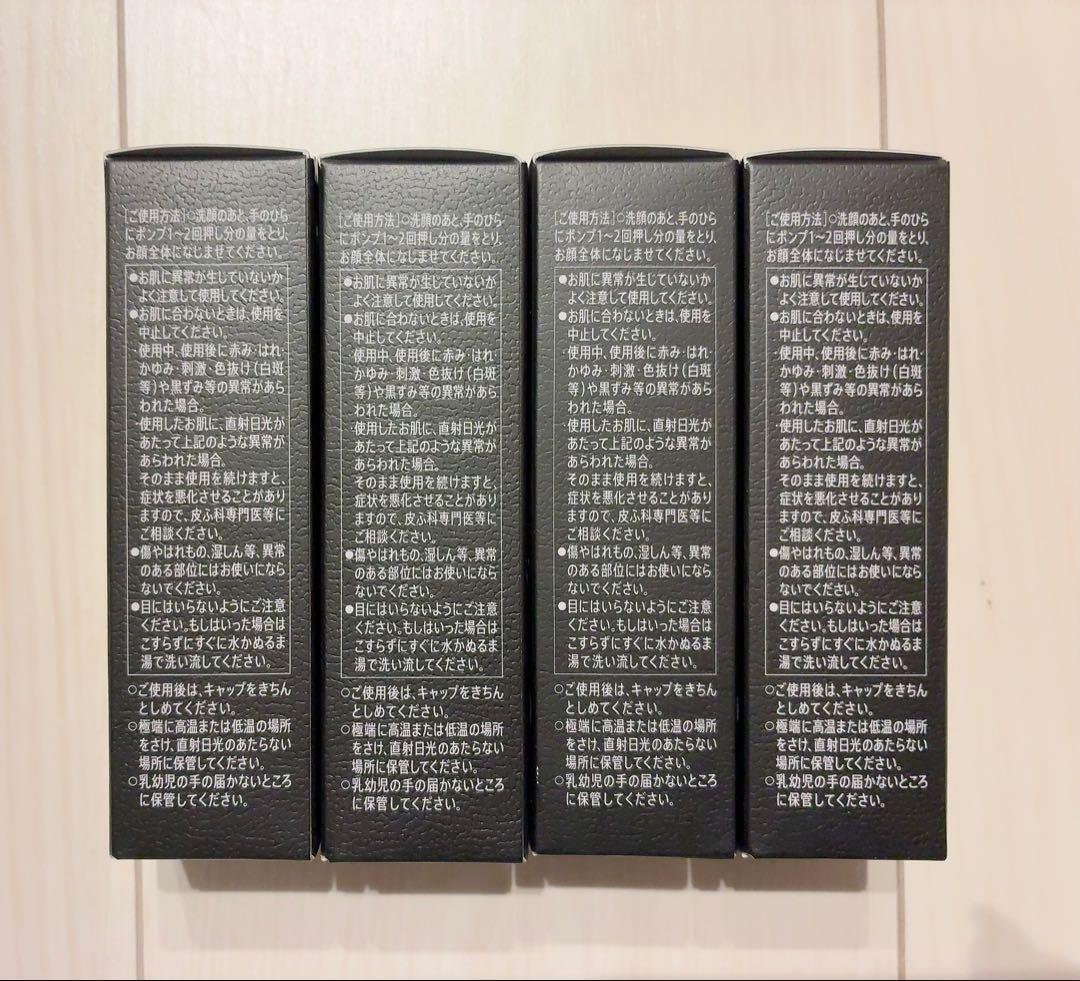 [ご使用方法]○洗顔のあと、手のひら
にポンプ1〜2回押し分の量をとり、
お顔全体になじませてください。
●お肌に異常が生じていないか
よく注意して使用してください。
●お肌に合わないときは、使用を
中止してください。
・使用中、使用後に赤み・はれ・
かゆみ・刺激・色抜け(白斑
等)や黒ずみ等の異常があら
われた場合。
・使用したお肌に、直射日光が
あたって上記のような異常が
あらわれた場合。
そのまま使用を続けますと、
症状を悪化させることがあり
ますので、皮ふ科専門医等に
ご相談ください。
●傷やはれもの、湿しん等、異常
のある部位にはお使いになら
ないでください。
●目にはいらないようにご注意
ください。もしはいった場合は
こすらずにすぐに水かぬるま
湯で洗い流してください。
○ご使用後は、キャップをきちん
としめてください。
○極端に高温または低温の場所
をさけ、直射日光のあたらない
場所に保管してください。
○乳幼児の手の届かないところ
に保管してください。
[ご使用方法]○洗顔のあと、手のひら
にポンプ1〜2回押し分の量をとり、
お顔全体になじませてください。
●お肌に異常が生じていないか
よく注意して使用してください。
●お肌に合わないときは、使用を
中止してください。
・使用中、使用後に赤み・はれ・
かゆみ・刺激・色抜け(白斑
等)や黒ずみ等の異常があら
われた場合。
・使用したお肌に、直射日光が
あたって上記のような異常が
あらわれた場合。
そのまま使用を続けますと、
症状を悪化させることがあり
ますので、皮ふ科専門医等に
ご相談ください。
●傷やはれもの、湿しん等、異常
のある部位にはお使いになら
ないでください。
●目にはいらないようにご注意
ください。もしはいった場合は
こすらずにすぐに水かぬるま
湯で洗い流してください。
○ご使用後は、キャップをきちん
としめてください。
○極端に高温または低温の場所
をさけ、直射日光のあたらない
場所に保管してください。
○乳幼児の手の届かないところ
に保管してください。
[ご使用方法]○洗顔のあと、手のひら
にポンプ1〜2回押し分の量をとり、
お顔全体になじませてください。
●お肌に異常が生じていないか
よく注意して使用してください。
●お肌に合わないときは、使用を
中止してください。
・使用中、使用後に赤み・はれ・
かゆみ・刺激・色抜け(白斑
等)や黒ずみ等の異常があら
われた場合。
・使用したお肌に、直射日光が
あたって上記のような異常が
あらわれた場合。
そのまま使用を続けますと、
症状を悪化させることがあり
ますので、皮ふ科専門医等に
ご相談ください。
●傷やはれもの、湿しん等、異常
のある部位にはお使いになら
ないでください。
●目にはいらないようにご注意
ください。もしはいった場合は
こすらずにすぐに水かぬるま
湯で洗い流してください。
○ご使用後は、キャップをきちん
としめてください。
○極端に高温または低温の場所
をさけ、直射日光のあたらない
場所に保管してください。
○乳幼児の手の届かないところ
に保管してください。
[ご使用方法]○洗顔のあと、手のひら
にポンプ1〜2回押し分の量をとり、
お顔全体になじませてください。
●お肌に異常が生じていないか
よく注意して使用してください。
●お肌に合わないときは、使用を
中止してください。
・使用中、使用後に赤み・はれ・
かゆみ・刺激・色抜け(白斑
等)や黒ずみ等の異常があら
われた場合。
・使用したお肌に、直射日光が
あたって上記のような異常が
あらわれた場合。
そのまま使用を続けますと、
症状を悪化させることがあり
ますので、皮ふ科専門医等に
ご相談ください。
●傷やはれもの、湿しん等、異常
のある部位にはお使いになら
ないでください。
●目にはいらないようにご注意
ください。もしはいった場合は
こすらずにすぐに水かぬるま
湯で洗い流してください。
○ご使用後は、キャップをきちん
としめてください。
○極端に高温または低温の場所
をさけ、直射日光のあたらない
場所に保管してください。
○乳幼児の手の届かないところ
に保管してください。